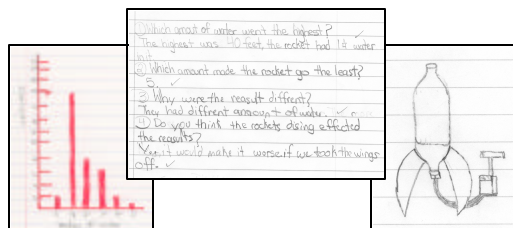 ① Which amout of water went the highest?
The highest was 40 feet, the rocket had 1# water
in it.
② Which amount made the rocket go the least?
5.
③ Why were the reasult diffrent?
They had diffrent amount of water.
④ Do you think the rockets dising effected
the reasults?
Yes, it would make it worse if we took the wings
off.